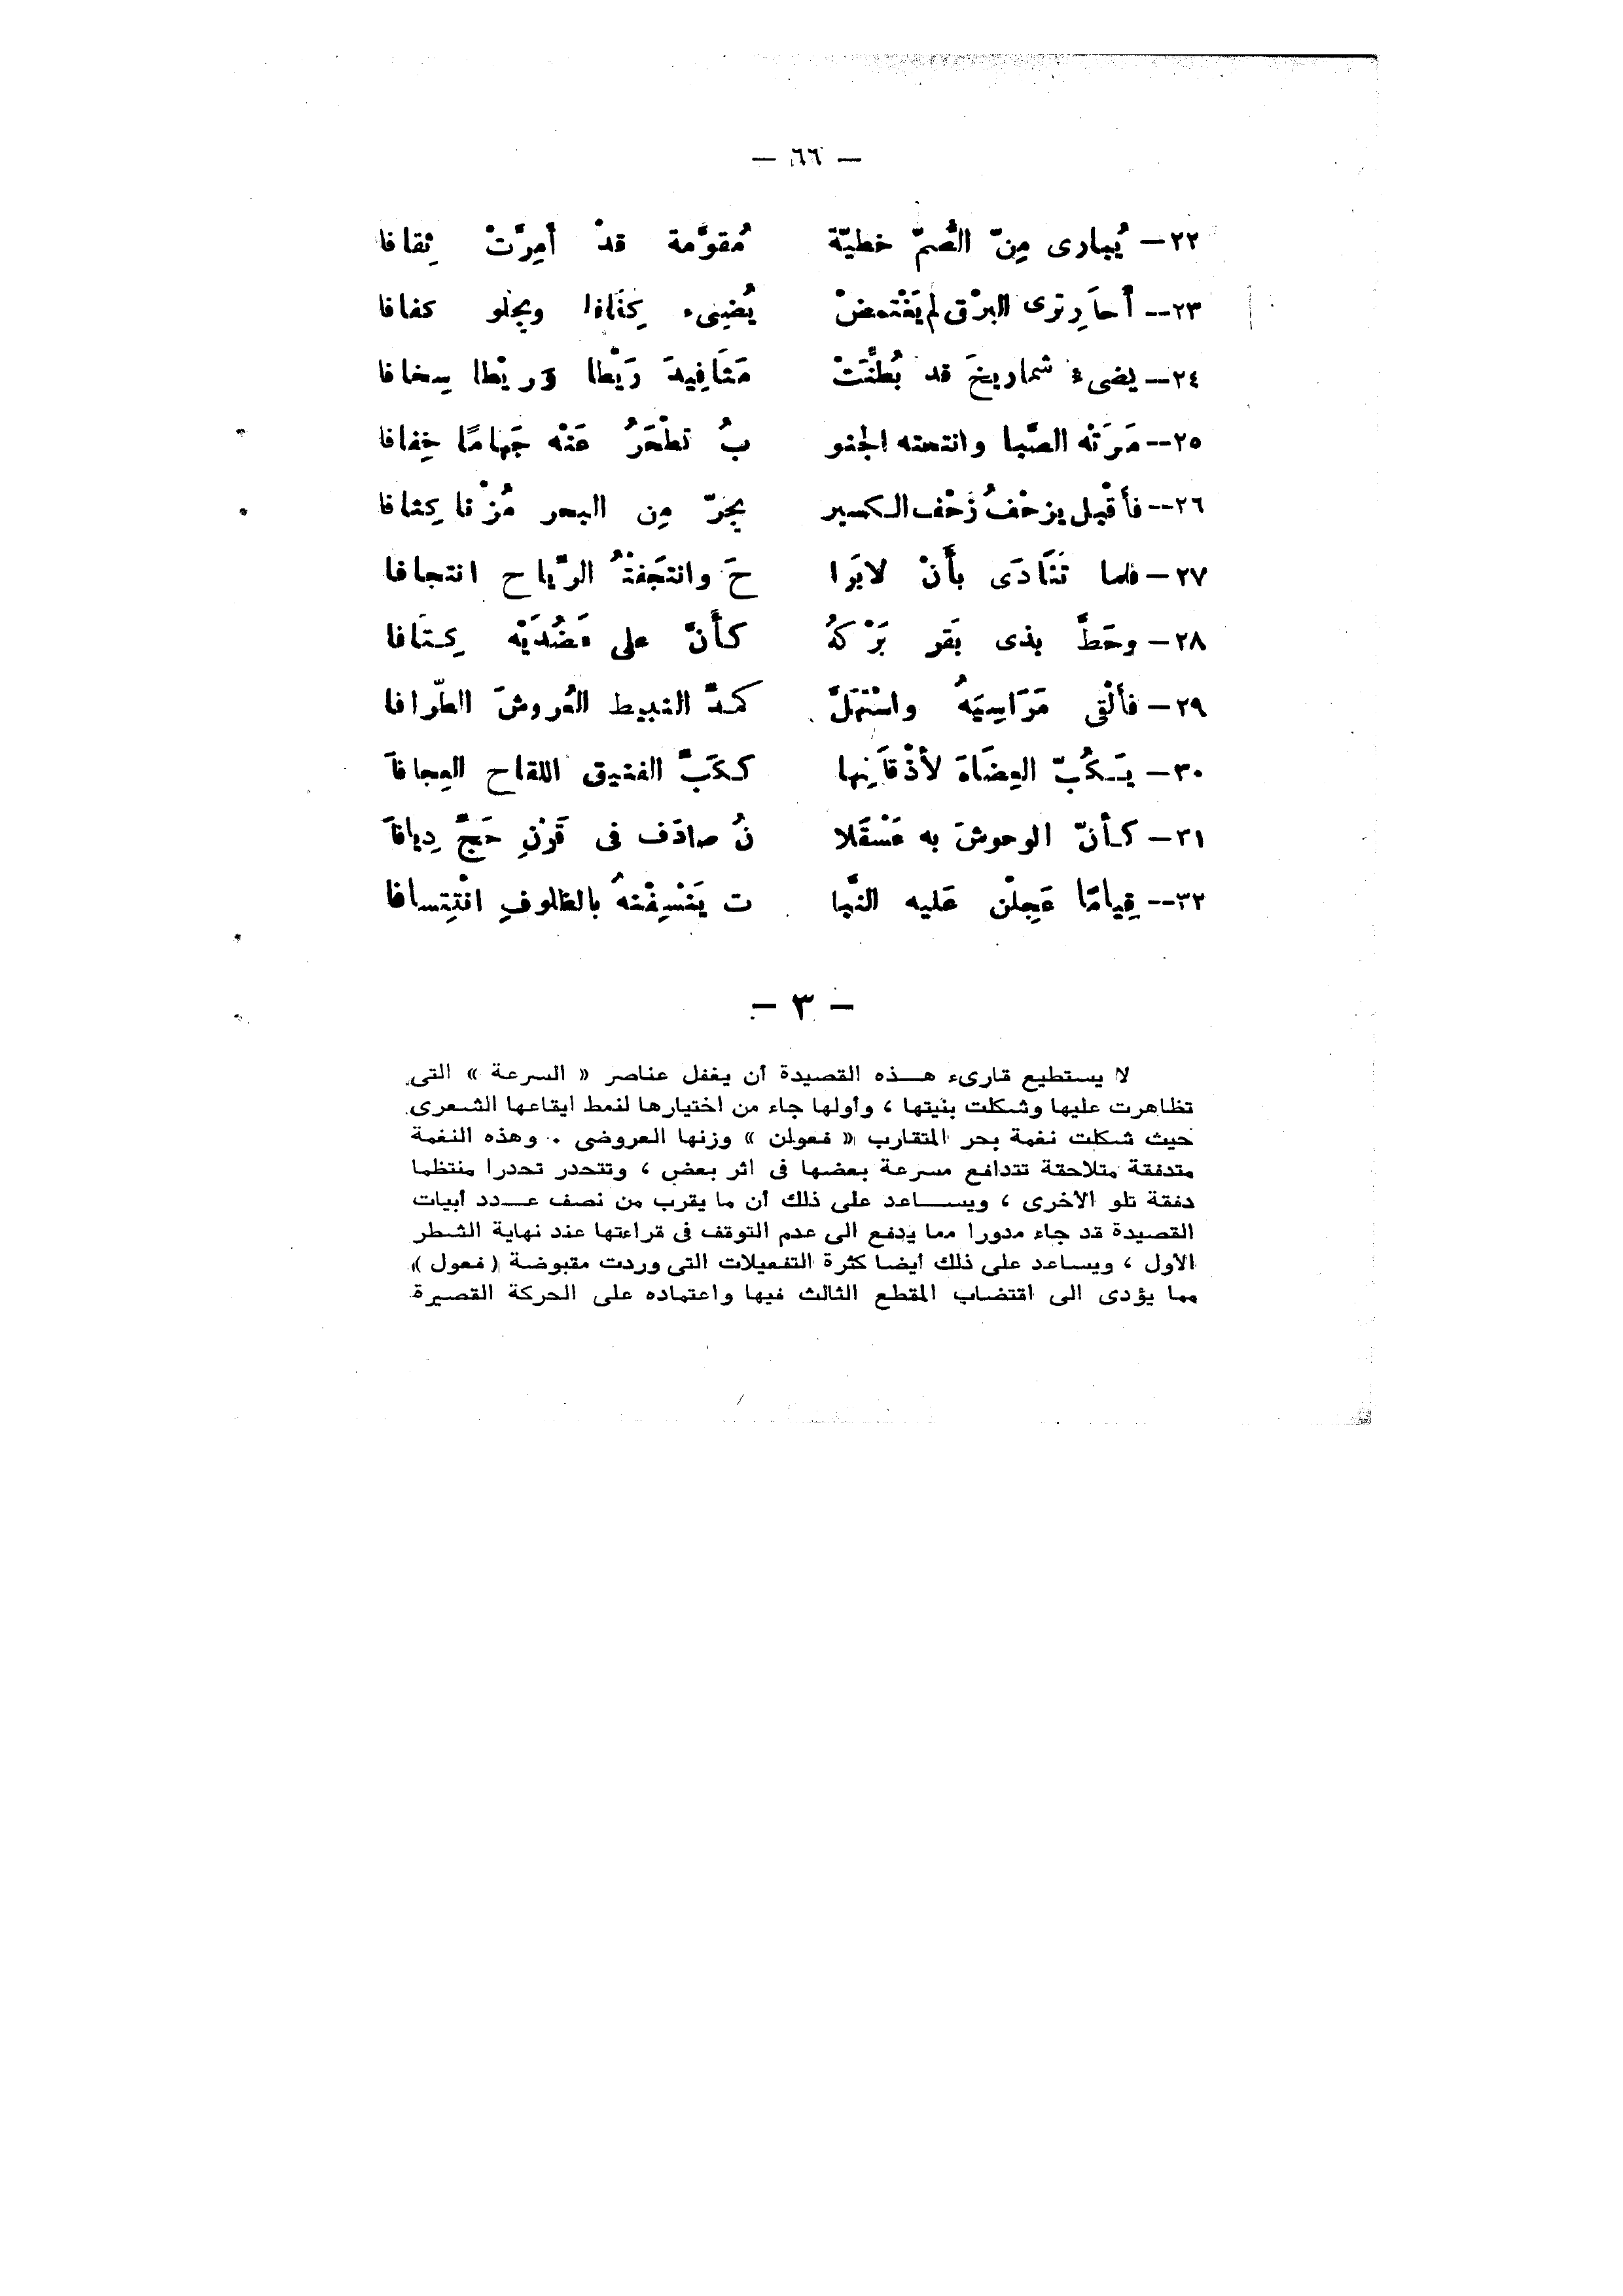 — ٦٦ —
٢٢— يُبارى مِنّ الصُّمّ خطيّة مُقوَّمة قدْ أمِرَّتْ ثِقافا
٢٣— أحارِ ترى البرْق لم يَغْتمضْ يُضِىء كِفَافا ويجلو كفافا
٢٤— يضىء شماريخَ قد بُطنَتْ مَثَافِيدَ رَيْطا وريْطا سِخافا
٢٥— مَرَتْه الصَّبا وانتحته الجنو بُ تطْحَرُ عَنْه جَهامًا خِفافا
٢٦— فأقْبل يزحْفُ زَحْف الكسير يجرّ مِن البحر مُزْنا كِثافا
٢٧— فلما تَنَادَى بأَنْ لا بَرَا حَ وانتجَفتْهُ الرّياح انتجافا
٢٨— وحَطَّ بذى بَقر بَرْكهُ كأَنَّ على عَضُدَيْه كِتَافا
٢٩— فألْقى مَرَاسِيَهُ واسْتهَلَّ كمدَّ النبيط العُروشَ الطّرافا
٣٠— يَكُبّ العِضَاهَ لأذْقَانِها ككَبَّ الفنيق اللقاح العِجافَا
٣١— كأنّ الوحوشَ به عَسْقَلا نُ صادَف فى قَرْنِ حَجَّ دِيافَا
٣٢— قِيامًا عَجِلْن عَليه النَّبا ت يَنْسِفْنهُ بالظلوفِ انْتِسافا
— ٣ —
لا يستطيع قارىء هـذه القصيدة أن يغفل عناصر « السرعة » التى
تظاهرت عليها وشكلت بنيتها ، وأولها جاء من اختيارها لنمط ايقاعها الشعرى
حيث شكلت نغمة بحر المتقارب « فعولن » وزنها العروضى . وهذه النغمة
متدفقة متلاحقة تتدافع مسرعة بعضها فى اثر بعض ، وتتحدر تحدرا منتظما
دفقة تلو الأخرى ، ويســاعد على ذلك أن ما يقرب من نصف عـدد أبيات
القصيدة قد جاء مدورا مما يدفع الى عدم التوقف فى قراءتها عند نهاية الشطر
الأول ، ويساعد على ذلك أيضا كثرة التفعيلات التى وردت مقبوضة ( فعول )
مما يؤدى الى اقتضاب المقطع الثالث فيها واعتماده على الحركة القصيرة